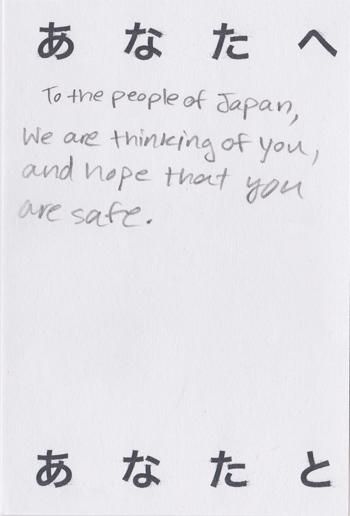 あなたへ
To the people of Japan,
We are thinking of you,
and hope that you
are safe.
あなたと